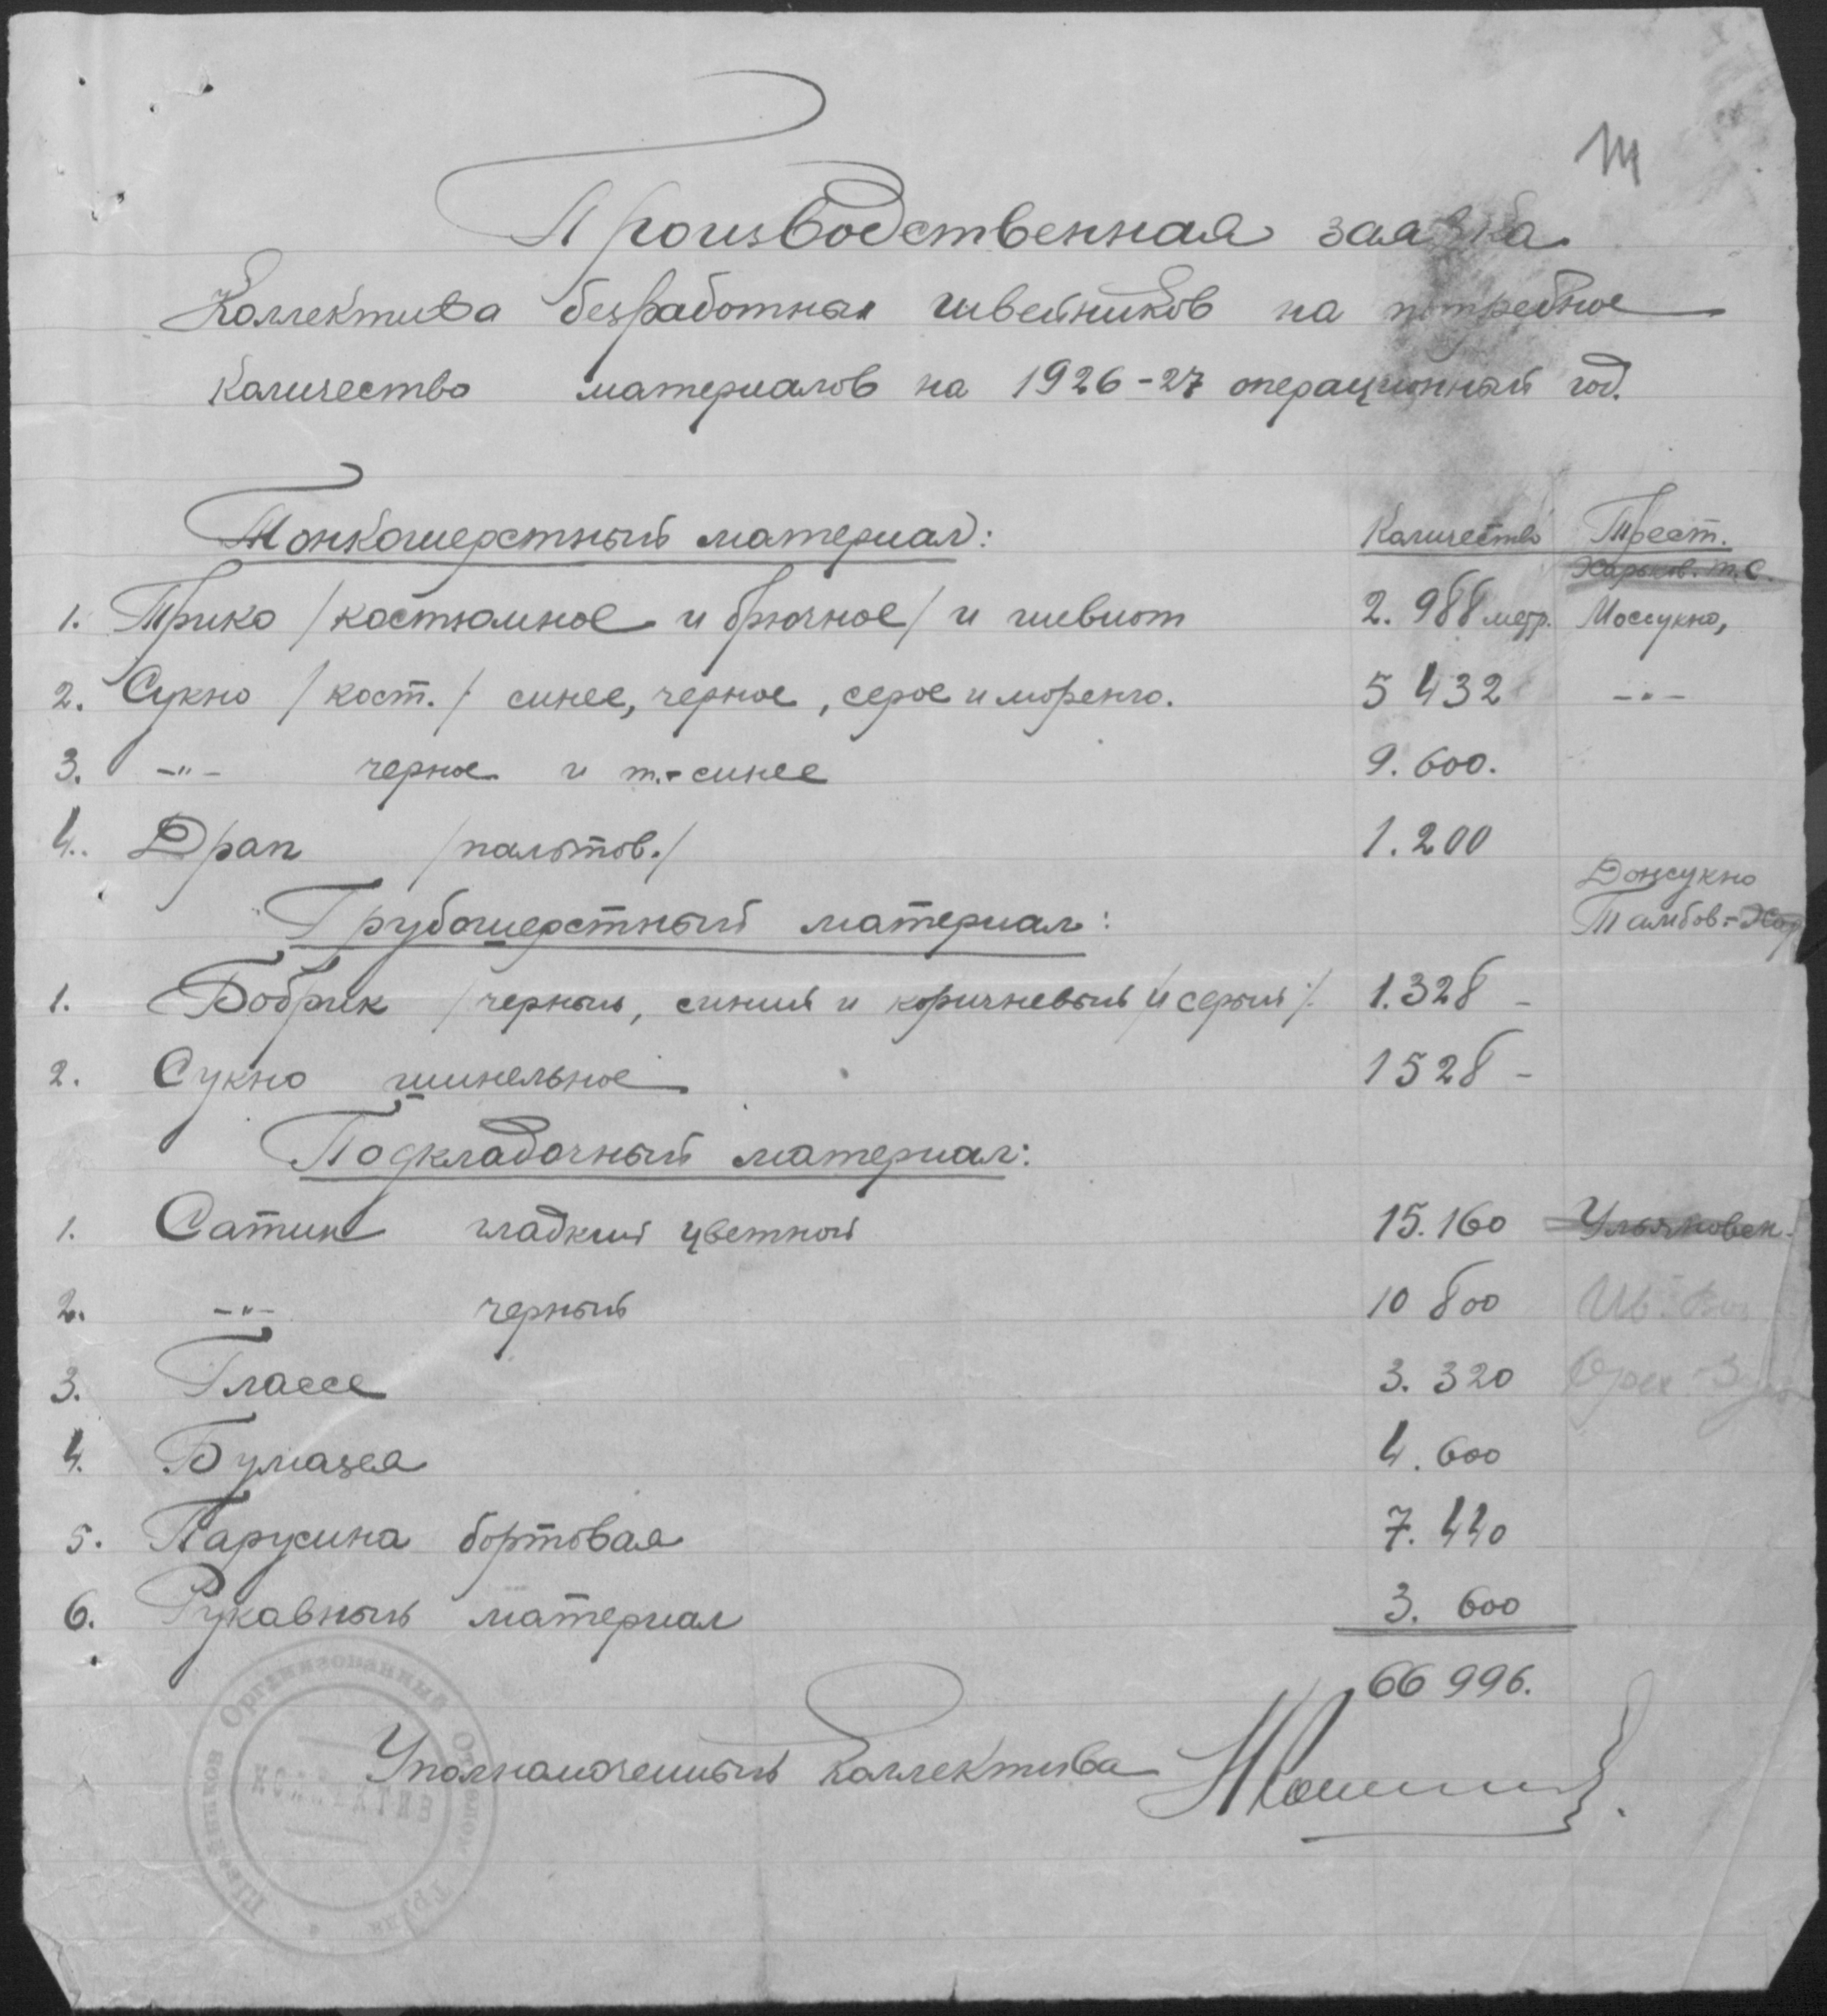 Производственная заявка
Коллектива безработных швейников на потребное
количество материалов на 1926-27 операционный год.
Тонкошерстный материал: Количество Трест.
Харьков. т.с.
1. Трико /костюмное и брючное/ и шевиот 2.988 метр. Моссукно,
2. Сукно /кост./ синее, черное, серое и моренго. 5 432 -"-
3. -"- черное и т.-синее 9.600.
4. Драп /пальтов./ 1.200
Донсукно
Грубошерстный материал: Тамбов.-
1. Бобрик /черный, синий и коричневый/ и серый/. 1.328 -
2. Сукно шинельное 1528 -
Подкладочный материал:
1. Сатин гладкий цветной 15.160 Ульяновск.
2. -"- черный 10 800 Ив.-Воз
3. Глассе 3.320 Орех-Зуев
4. Бумазея 4.600
5. Парусина бортовая 7.440
6. Рукавный материал 3.600
66 996.
Уполномоченный коллектива
Швейников Организованный Отделом Труда
КОЛЛЕКТИВ